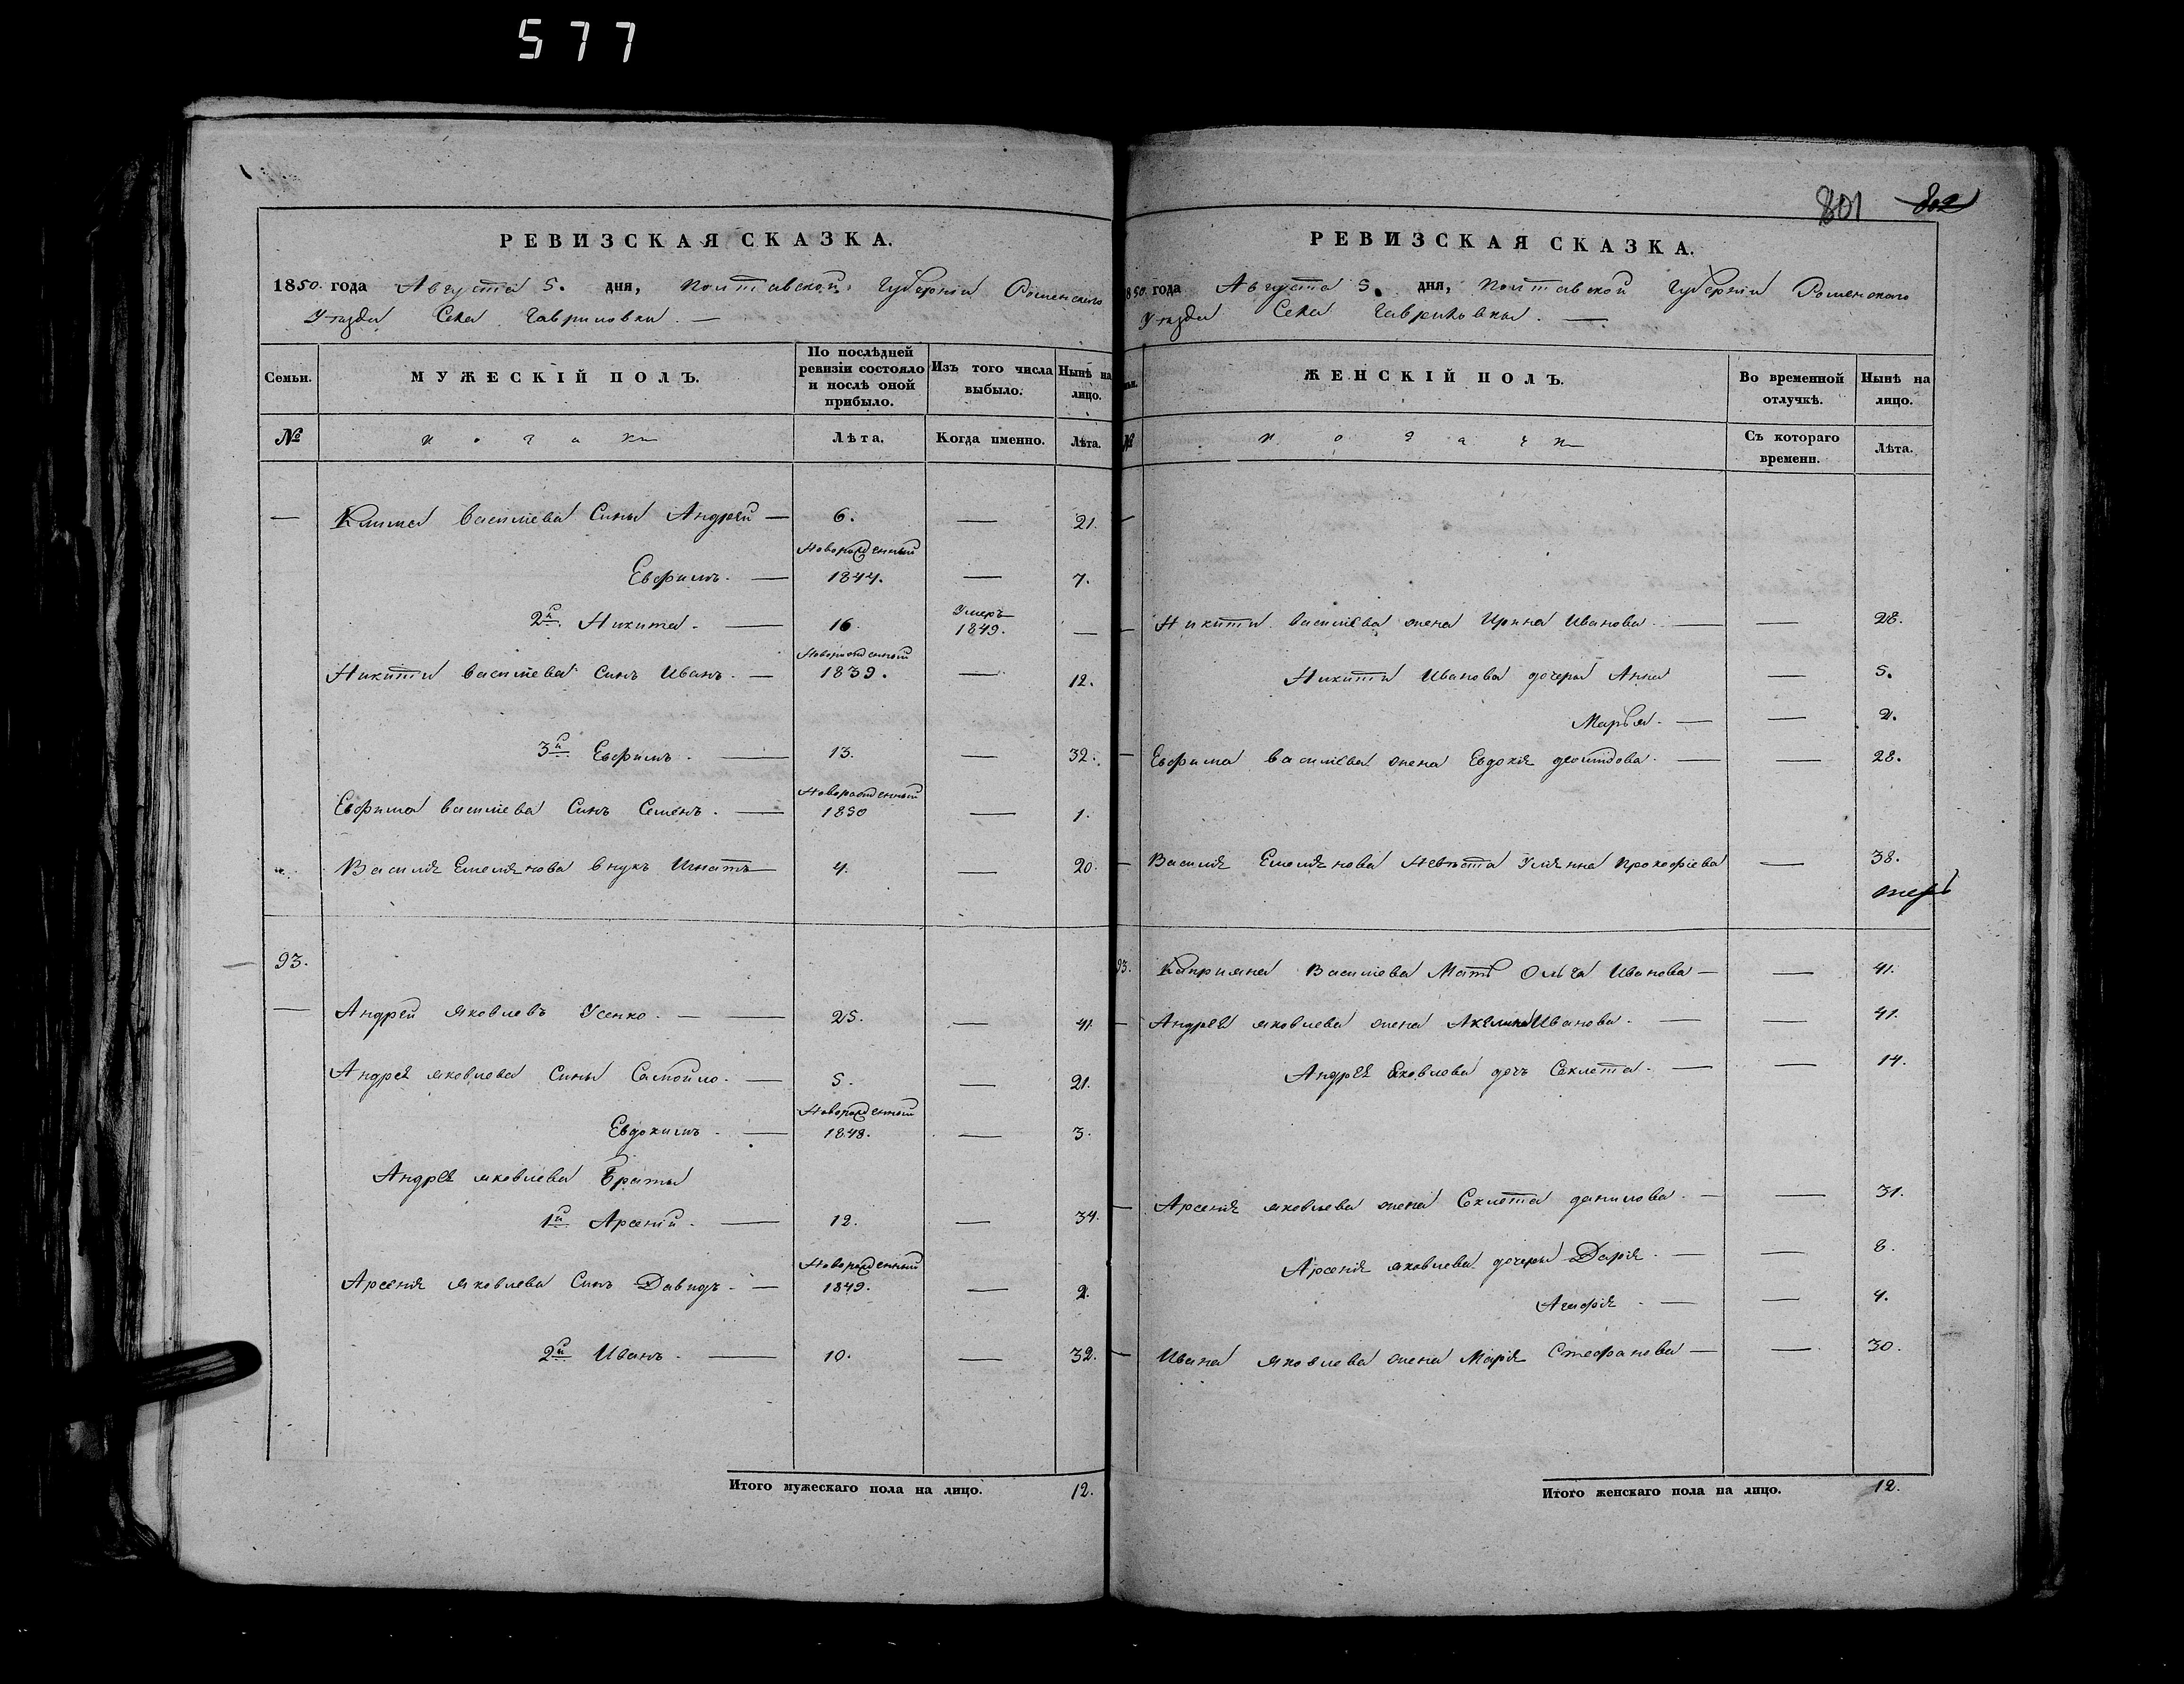 577
801 802
РЕВИЗСКАЯ СКАЗКА.
1850 года Августа 5. дня, Полтавской Губерніи Роменского
Уезда Села Гавриловки. —
Семьи. МУЖЕСКІЙ ПОЛЪ. По послѣдней ревизіи состояло и послѣ оной прибыло. Изъ того числа выбыло. Нынѣ на лицо.
№ Лѣта. Когда именно. Лѣта.
— Клима Васииева Сины Андрей — 6. — 21.
Новорожденный
Евфимъ. — 1844. — 7.
2й. Никита. — 16. Умеръ 1849. —
Новорожденный
Никиты Василева Синъ Иванъ. — 1839. — 12.
3й Евфимъ. — 13. — 32.
Новорожденный
Евфима Василева Синъ Семенъ. — 1850 — 1.
Василя Емелянова внукъ Игнатъ — 4. — 20.
93.
— Андрей Яковлевъ Усенко. — 25. — 41.
Андрея Яковлева Сины Самойло. — 5. — 21.
Новорожденный
Евдокимъ. — 1848. — 3.
Андрея Яковлева Браты
1й Арсеній. — 12. — 34.
Новорожденный
Арсенія Яковлева Синъ Давидъ. — 1849. — 2.
2й Иванъ. — 10. — 32.
Итого мужескаго пола на лицо. 12.
РЕВИЗСКАЯ СКАЗКА.
1850 года Августа 5. дня, Полтавской Губерніи Роменского
Уезда Села Гавриловки. —
ЖЕНСКІЙ ПОЛЪ. Во временной отлучкѣ. Нынѣ на лицо.
№ Съ котораго времени. Лѣта.
— Никиты Василева жена Ирина Иванова. — — 28.
Никиты Иванова дочеры Анна — 5.
Марья. — — 2.
— Евфима Василева жена Евдокія — — 28.
— Василя Емелянова Невѣста Уляна Прокофіева — 38.
93. Киприяна Василева Мать Ольга Иванова — — 41.
— Андрея Яковлева жена Акелина Иванова. — — 41.
Андрея Яковлева дочъ Секлета. — — 14.
— Арсенія Яковлева жена Секлета Данилова. — — 31.
Арсенія Яковлева дочеры Дарія. — — 8.
Агафія. — — 4.
— Ивана Яковлева жена Марія Стефанова — — 30.
Итого женскаго пола на лицо. 12.